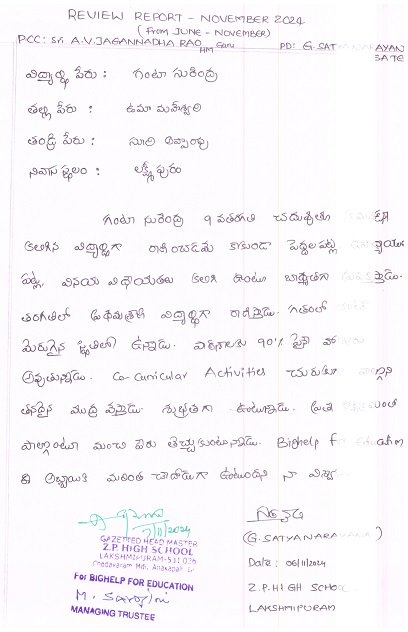 REVIEW REPORT - NOVEMBER 2024
(From JUNE - NOVEMBER)
PCC: Sri A.V. JAGANNADHA RAO HM Garu PD: G. SATYANARAYAN
విద్యార్థి పేరు : గంటా సురేంద్ర
తల్లి పేరు : ఉమా మహేశ్వరి
తండ్రి పేరు : సూరి అప్పారావు
నివాస స్థలం : లక్ష్మీపురం
గంటా సురేంద్ర 9 వతరగతి చదువుతూ
కలిగిన విద్యార్థిగా రాణించడమే కాకుండా పెద్దలపట్ల
పట్ల, వినయ విధేయతలు కలిగి ఉంటూ బాధ్యతగా
తరగతిలో ప్రథమశ్రేణి విద్యార్థిగా రాణిస్తాడు. గతంలో
మెరుగైన స్థితిలో ఉన్నాడు. పాఠశాలకు 90% పైనే
అవుతున్నాడు. Co-curricular Activities చురుకుగా
తనదైన ముద్ర వేస్తాడు. శుభ్రతగా ఉంటున్నాడు. ప్రతి
పాల్గొంటూ మంచి పేరు తెచ్చుకుంటున్నాడు. Bighelp for Education
ఈ అబ్బాయికి మరింత చేదోడుగా ఉంటుందని నా
7/11/2024
GAZETTED HEAD MASTER
Z.P. HIGH SCHOOL
LAKSHMIPURAM-531 026
Cheedavaram Mdl, Anakapalli Dt
For BIGHELP FOR EDUCATION
M. Sarojini
MANAGING TRUSTEE
(G. SATYANARAYANA)
Date : 06/11/2024
Z.P. HIGH SCHOOL
LAKSHMIPURAM